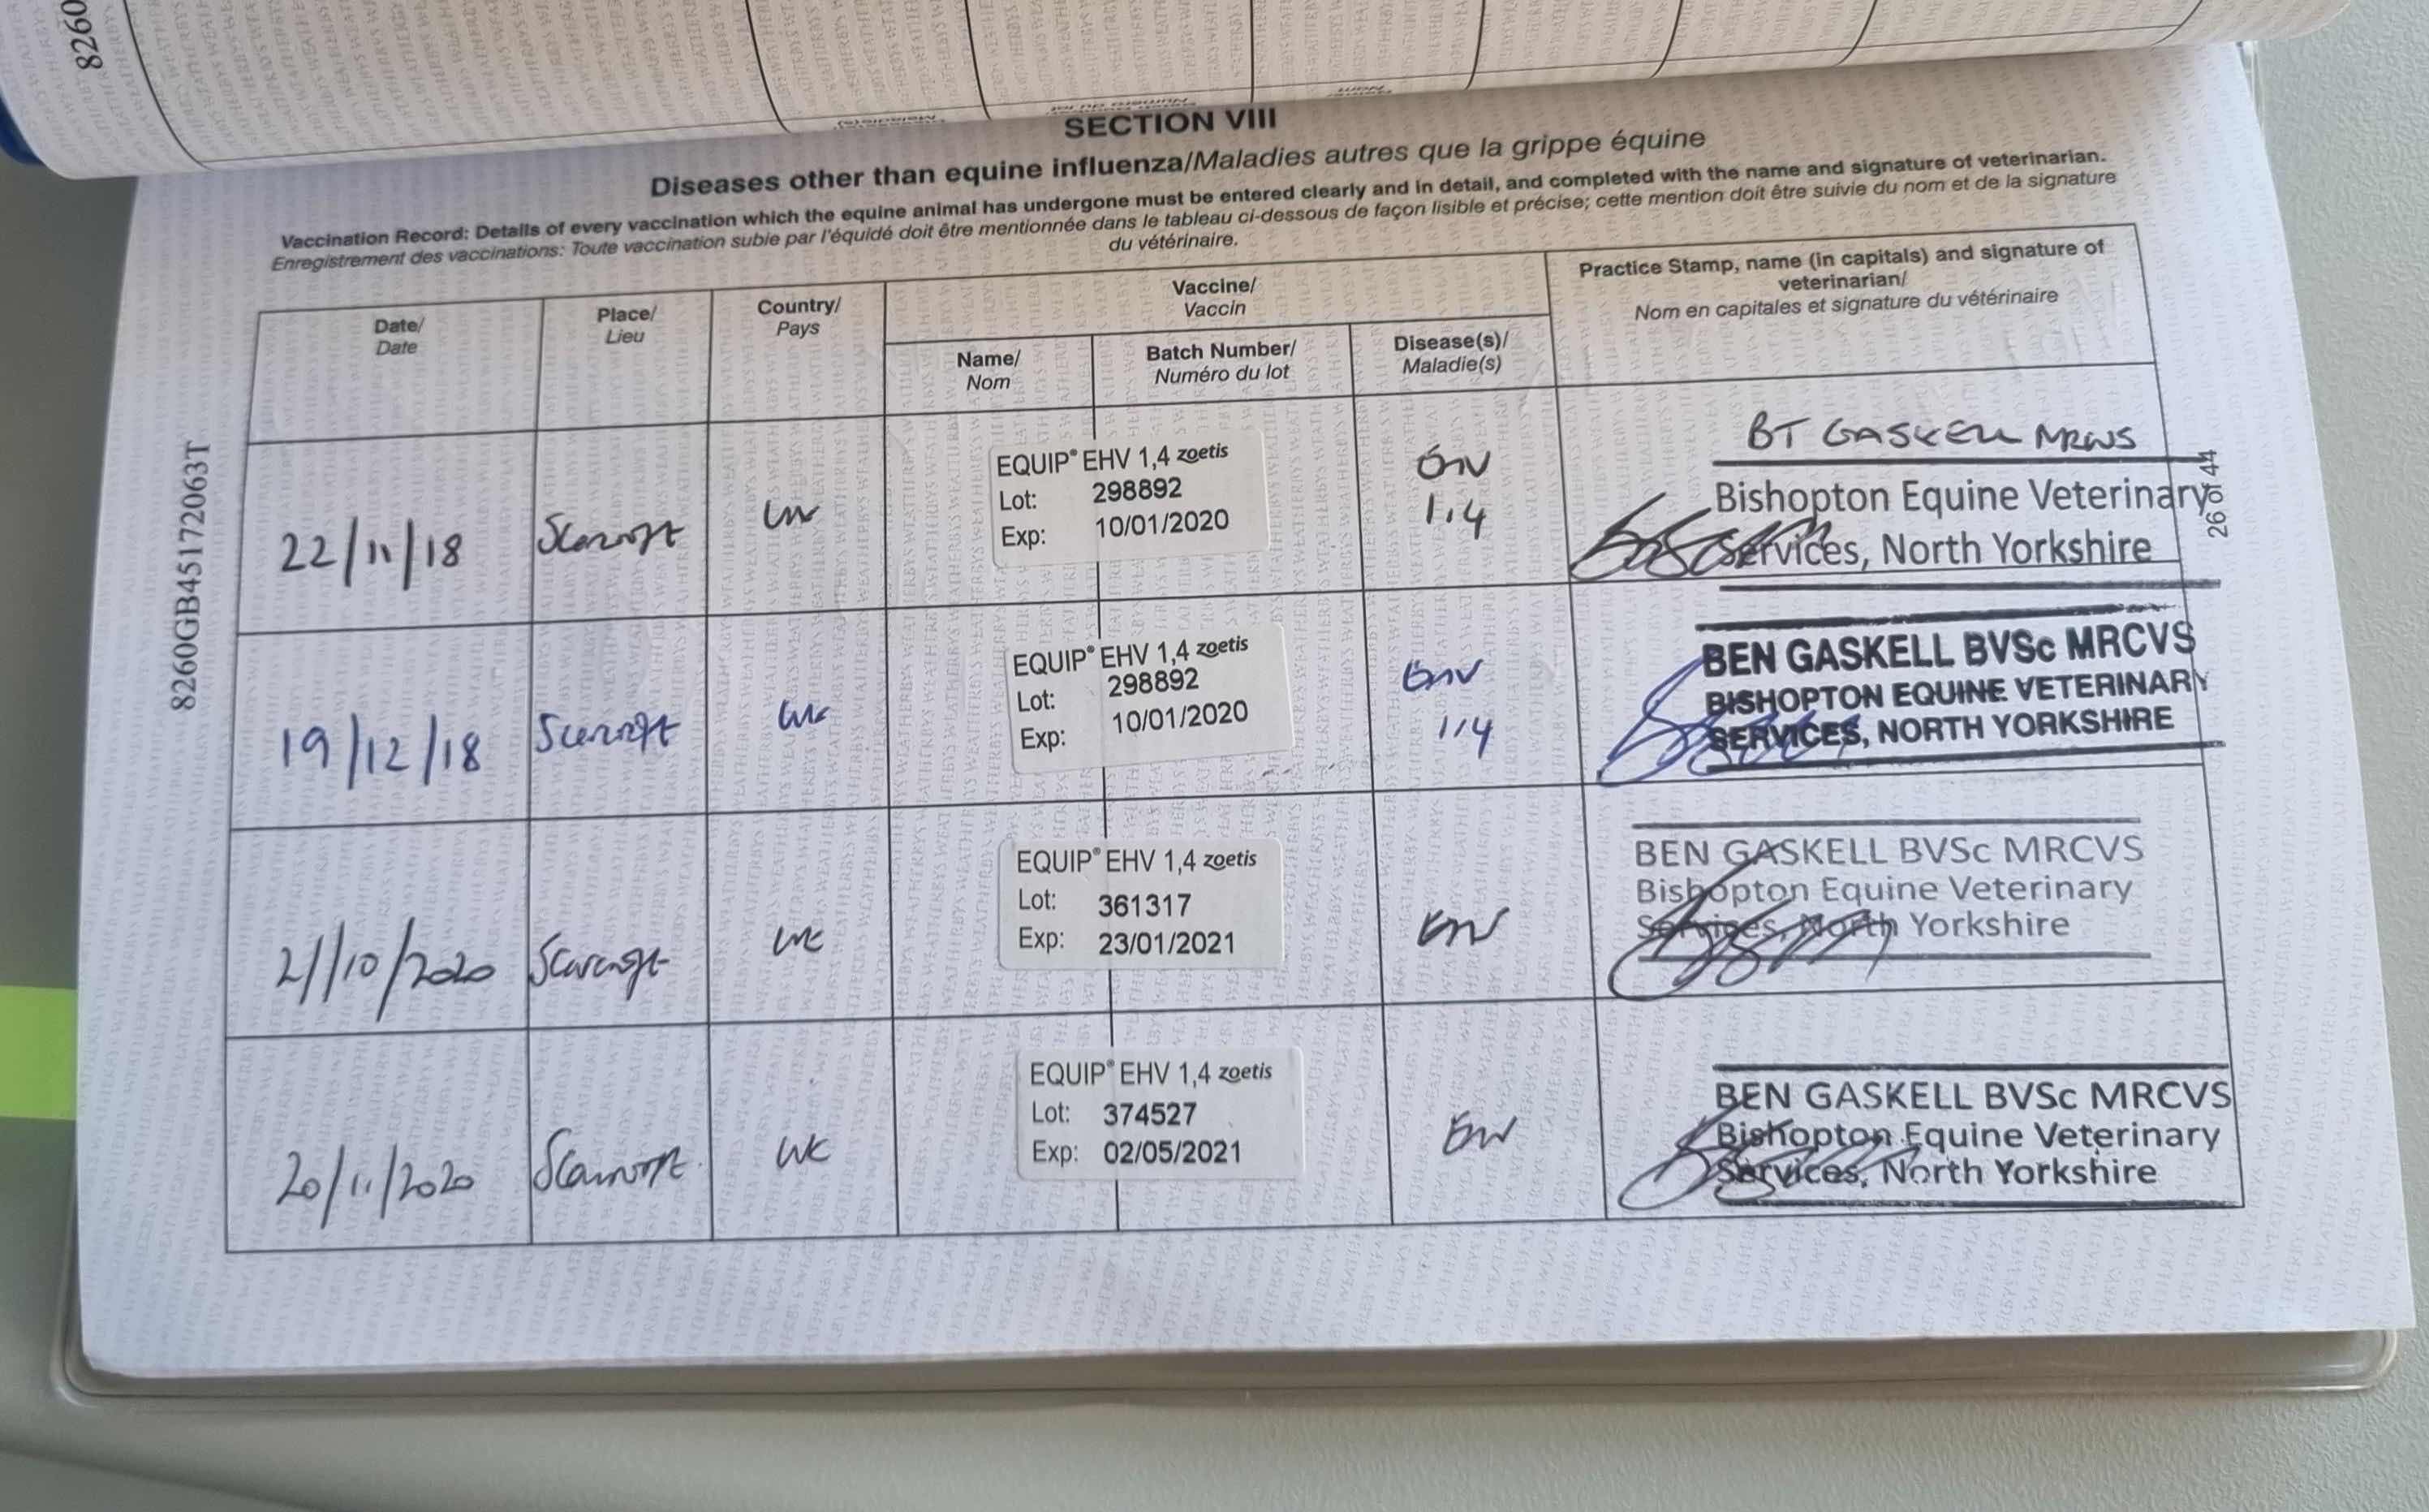 8260
SECTION VIII
Diseases other than equine influenza/Maladies autres que la grippe équine
Vaccination Record: Details of every vaccination which the equine animal has undergone must be entered clearly and in detail, and completed with the name and signature of veterinarian.
Enregistrement des vaccinations: Toute vaccination subie par l'équidé doit être mentionnée dans le tableau ci-dessous de façon lisible et précise; cette mention doit être suivie du nom et de la signature
du vétérinaire.
Date/
Date
Place/
Lieu
Country/
Pays
Vaccine/
Vaccin
Name/
Nom
Batch Number/
Numéro du lot
Disease(s)/
Maladie(s)
Practice Stamp, name (in capitals) and signature of
veterinarian/
Nom en capitales et signature du vétérinaire
22/11/18
Scarcroft
UK
EQUIP® EHV 1,4 zoetis
Lot: 298892
Exp: 10/01/2020
EHV
1,4
BT GASKELL MRCVS
Bishopton Equine Veterinary
Services, North Yorkshire
19/12/18
Scarcroft
UK
EQUIP® EHV 1,4 zoetis
Lot: 298892
Exp: 10/01/2020
EHV
1,4
BEN GASKELL BVSc MRCVS
BISHOPTON EQUINE VETERINARY
SERVICES, NORTH YORKSHIRE
21/10/2020
Scarcroft
UK
EQUIP® EHV 1,4 zoetis
Lot: 361317
Exp: 23/01/2021
EHV
BEN GASKELL BVSc MRCVS
Bishopton Equine Veterinary
Services, North Yorkshire
20/11/2020
Scarcroft
UK
EQUIP® EHV 1,4 zoetis
Lot: 374527
Exp: 02/05/2021
EHV
BEN GASKELL BVSc MRCVS
Bishopton Equine Veterinary
Services, North Yorkshire
8260GB45172063T
26 of 44